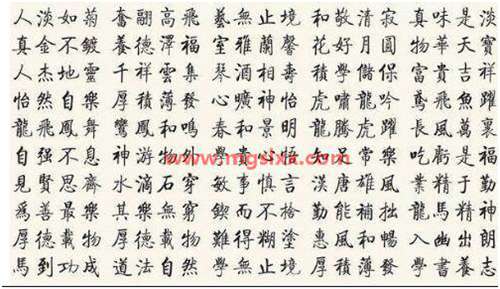 人淡如菊 奮翮高飛 藝無止境 和敬清寂 真味是淡
真金不鍍 養德澤福 室雅蘭馨 花好月圓 物華天寶
人杰地靈 千祥雲集 琴酒相壽 積學儲保 富貴吉祥
怡然自樂 厚積薄發 心曠神怡 虎嘯龍吟 鳶飛魚躍
龍飛鳳舞 鸞鳳和鳴 春和景明 龍騰虎躍 長風萬裏
自强不息 神游物外 學貴心悟 知足常樂 吃虧是福
www.mgslxa.com
見賢思齊 水滴石穿 敏事慎言 漢唐雄風 業精于勤
為善最樂 其樂無窮 鍥而不捨 勤能補拙 龍馬精神
厚德載物 厚德載物 難得糊塗 惠風和暢 入幽出朗
馬到功成 道法自然 學無止境 厚積薄發 學書養志